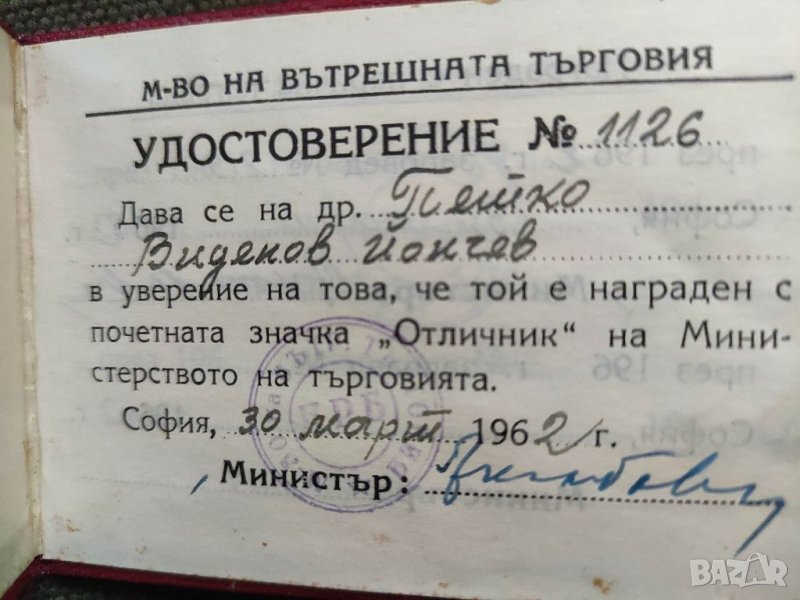 М-ВО НА ВЪТРЕШНАТА ТЪРГОВИЯ
УДОСТОВЕРЕНИЕ № 1126
Дава се на др. Петко
Виденов Йончев
в уверение на това, че той е награден с
почетната значка „Отличник“ на Мини-
стерството на търговията.
София, 30 март 1962 г.
Министър:
BAZAR